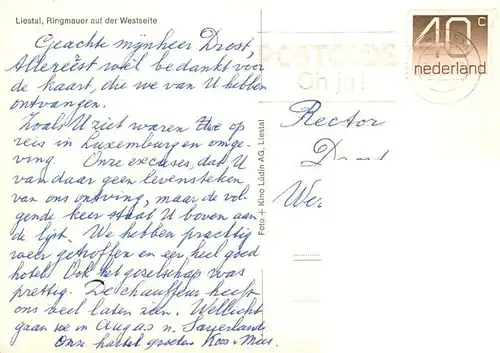 Liestal, Ringmauer auf der Westseite
Geachte mynheer Drost,
Allereerst wel bedankt voor
de kaart, die we van U hebben
ontvangen.
Zoals U ziet waren we op
reis in Luxemburg en omge-
ving. Onze excuses, dat U
van daar geen levensteken
van ons ontving, maar de vol-
gende keer staat U boven aan
de lijst. We hebben prachtig
weer getroffen en een heel goed
hotel. Ook het geselschap was
prettig. De chauffeur heeft
ons veel laten zien. Wellicht
gaan we in Aug as n. Sauerland
Onze hartel groeten Koos + Mies.
Foto + Kino Lüdin AG, Liestal
POSTCODE
Oh ja!
40 c
nederland
Rector